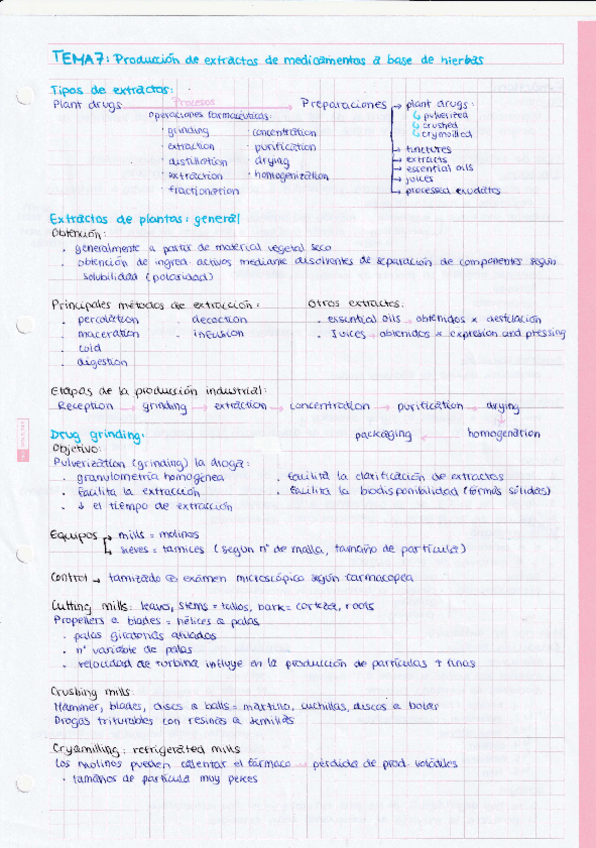 TEMA 7: Producción de extractos de medicamentos a base de hierbas
Tipos de extractos:
Plant drugs Procesos → Preparaciones → plant drugs:
operaciones farmacéuticas: ↳ pulverized
· grinding · concentration ↳ crushed
· extraction · purification ↳ cryomilled
· distillation · drying → tinctures
· extraction · homogenization → extracts
· fractionation → essential oils
→ juices
→ processed exudates
Extractos de plantas: general
Obtención:
· generalmente a partir de material vegetal seco
· obtención de ingred. activos mediante disolventes de separación de componentes según
solubilidad (polaridad)
Principales métodos de extracción: Otros extractos:
· percolation · decoction · essential oils → obtenidos x destilación
· maceration · infusion · Juices → obtenidos x expresion and pressing
· cold
· digestion
Etapas de la producción industrial:
Reception → grinding → extraction → concentration → purification → drying
packaging ← homogenation
Drug grinding:
Objetivo:
Pulverization (grinding) la droga:
· granulometría homogénea · Facilita la clarificación de extractos
· Facilita la extracción · Facilita la biodisponibilidad (formas sólidas)
· ↓ el tiempo de extracción
Equipos → mills = molinos
↳ sieves = tamices (según nº de malla, tamaño de partícula)
Control → tamizado o exámen microscópico según farmacopea
Cutting mills: leaves, stems = tallos, bark = corteza, roots
Propellers o blades = hélices o palas
· palas giratorias afiladas
· nº variable de palas
· velocidad de turbina influye en la producción de partículas + finas
Crushing mills:
Hammer, blades, discs o balls = martillo, cuchillas, discos o bolas
Drogas triturables con resinas o semillas
Cryomilling: refrigerated mills
Los molinos pueden calentar el fármaco → pérdida de prod. volátiles
· tamaños de partícula muy peques